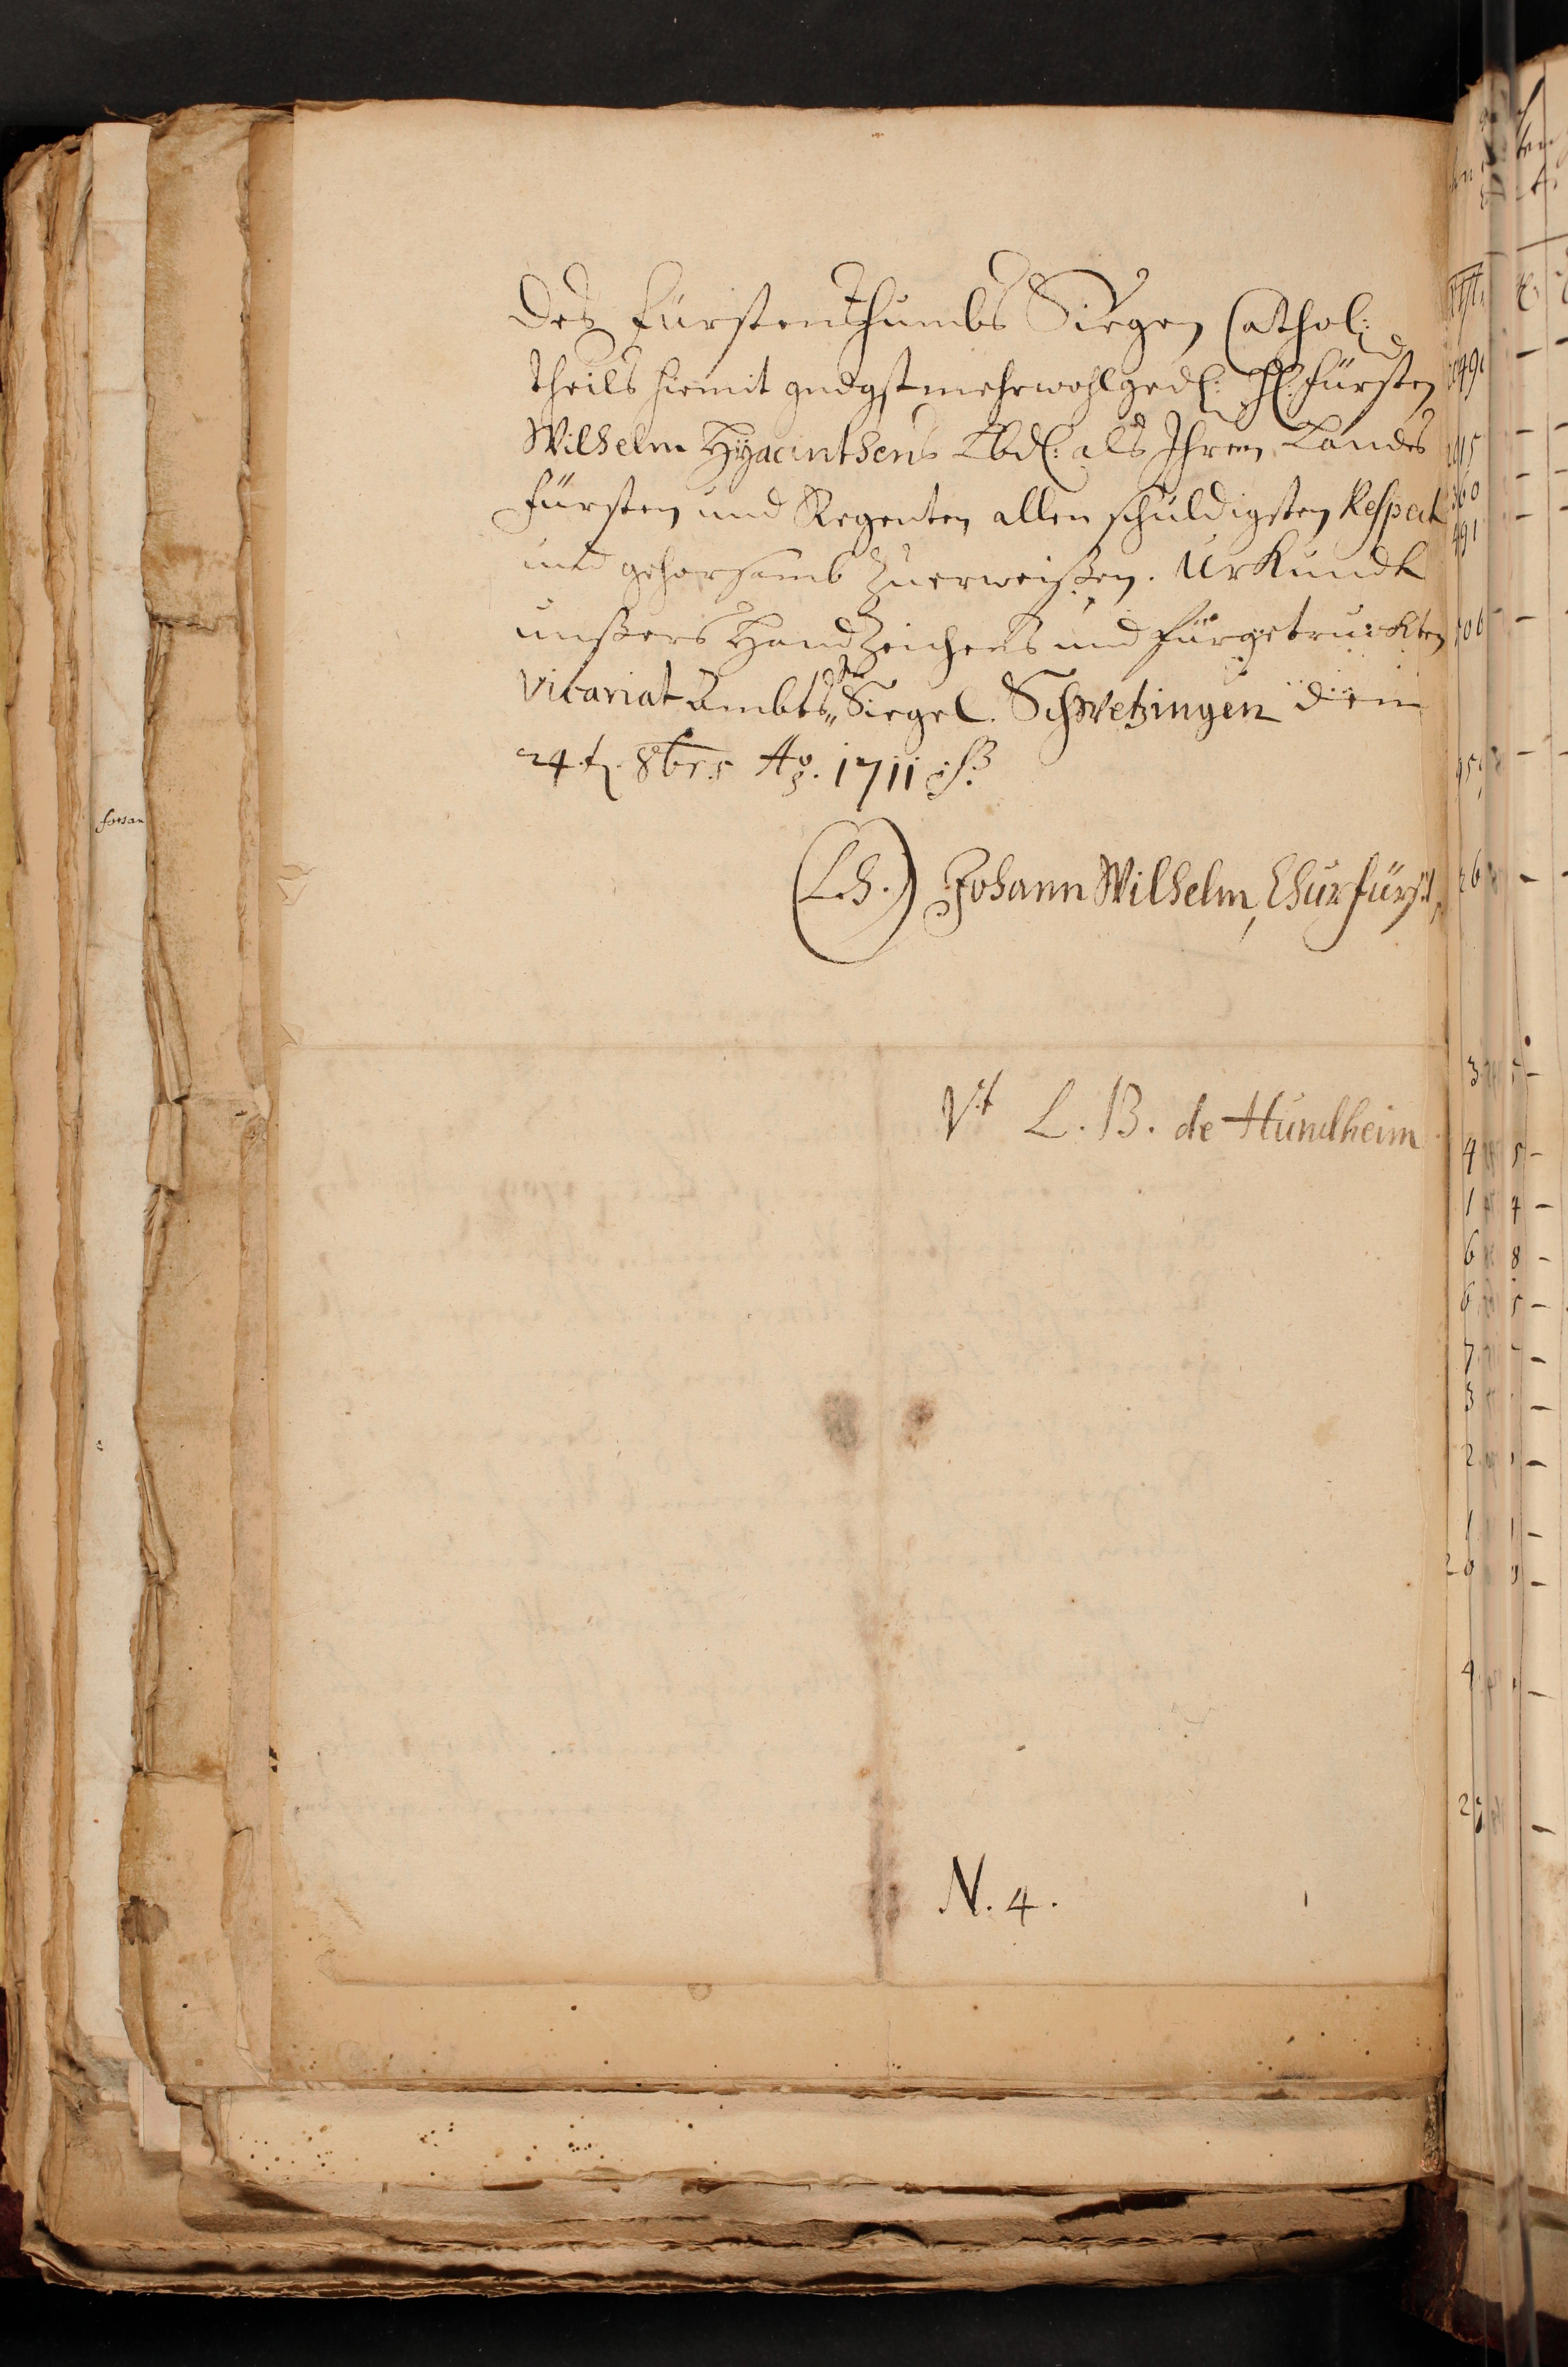 Deß Fürstenthumbs Siegen Cathol:
theils hiemit gndgst mehrwohlged: H: Fürsten
Wilhelm Hyacinthens Lbd: als Ihrem Landts
Fürsten und Regenten allen schuldigsten Respect
und gehorsamb zuerweißen. Urkundt
unßers Handzeichens und fürgetruckten
Vicariat Ambts Siegel. Schwetzingen den
24.t. 8br.s Ao. 1711
(L.S.) Johann Wilhelm, Churfürst,
Vt L. B. de Hundheim
N. 4.
forsan